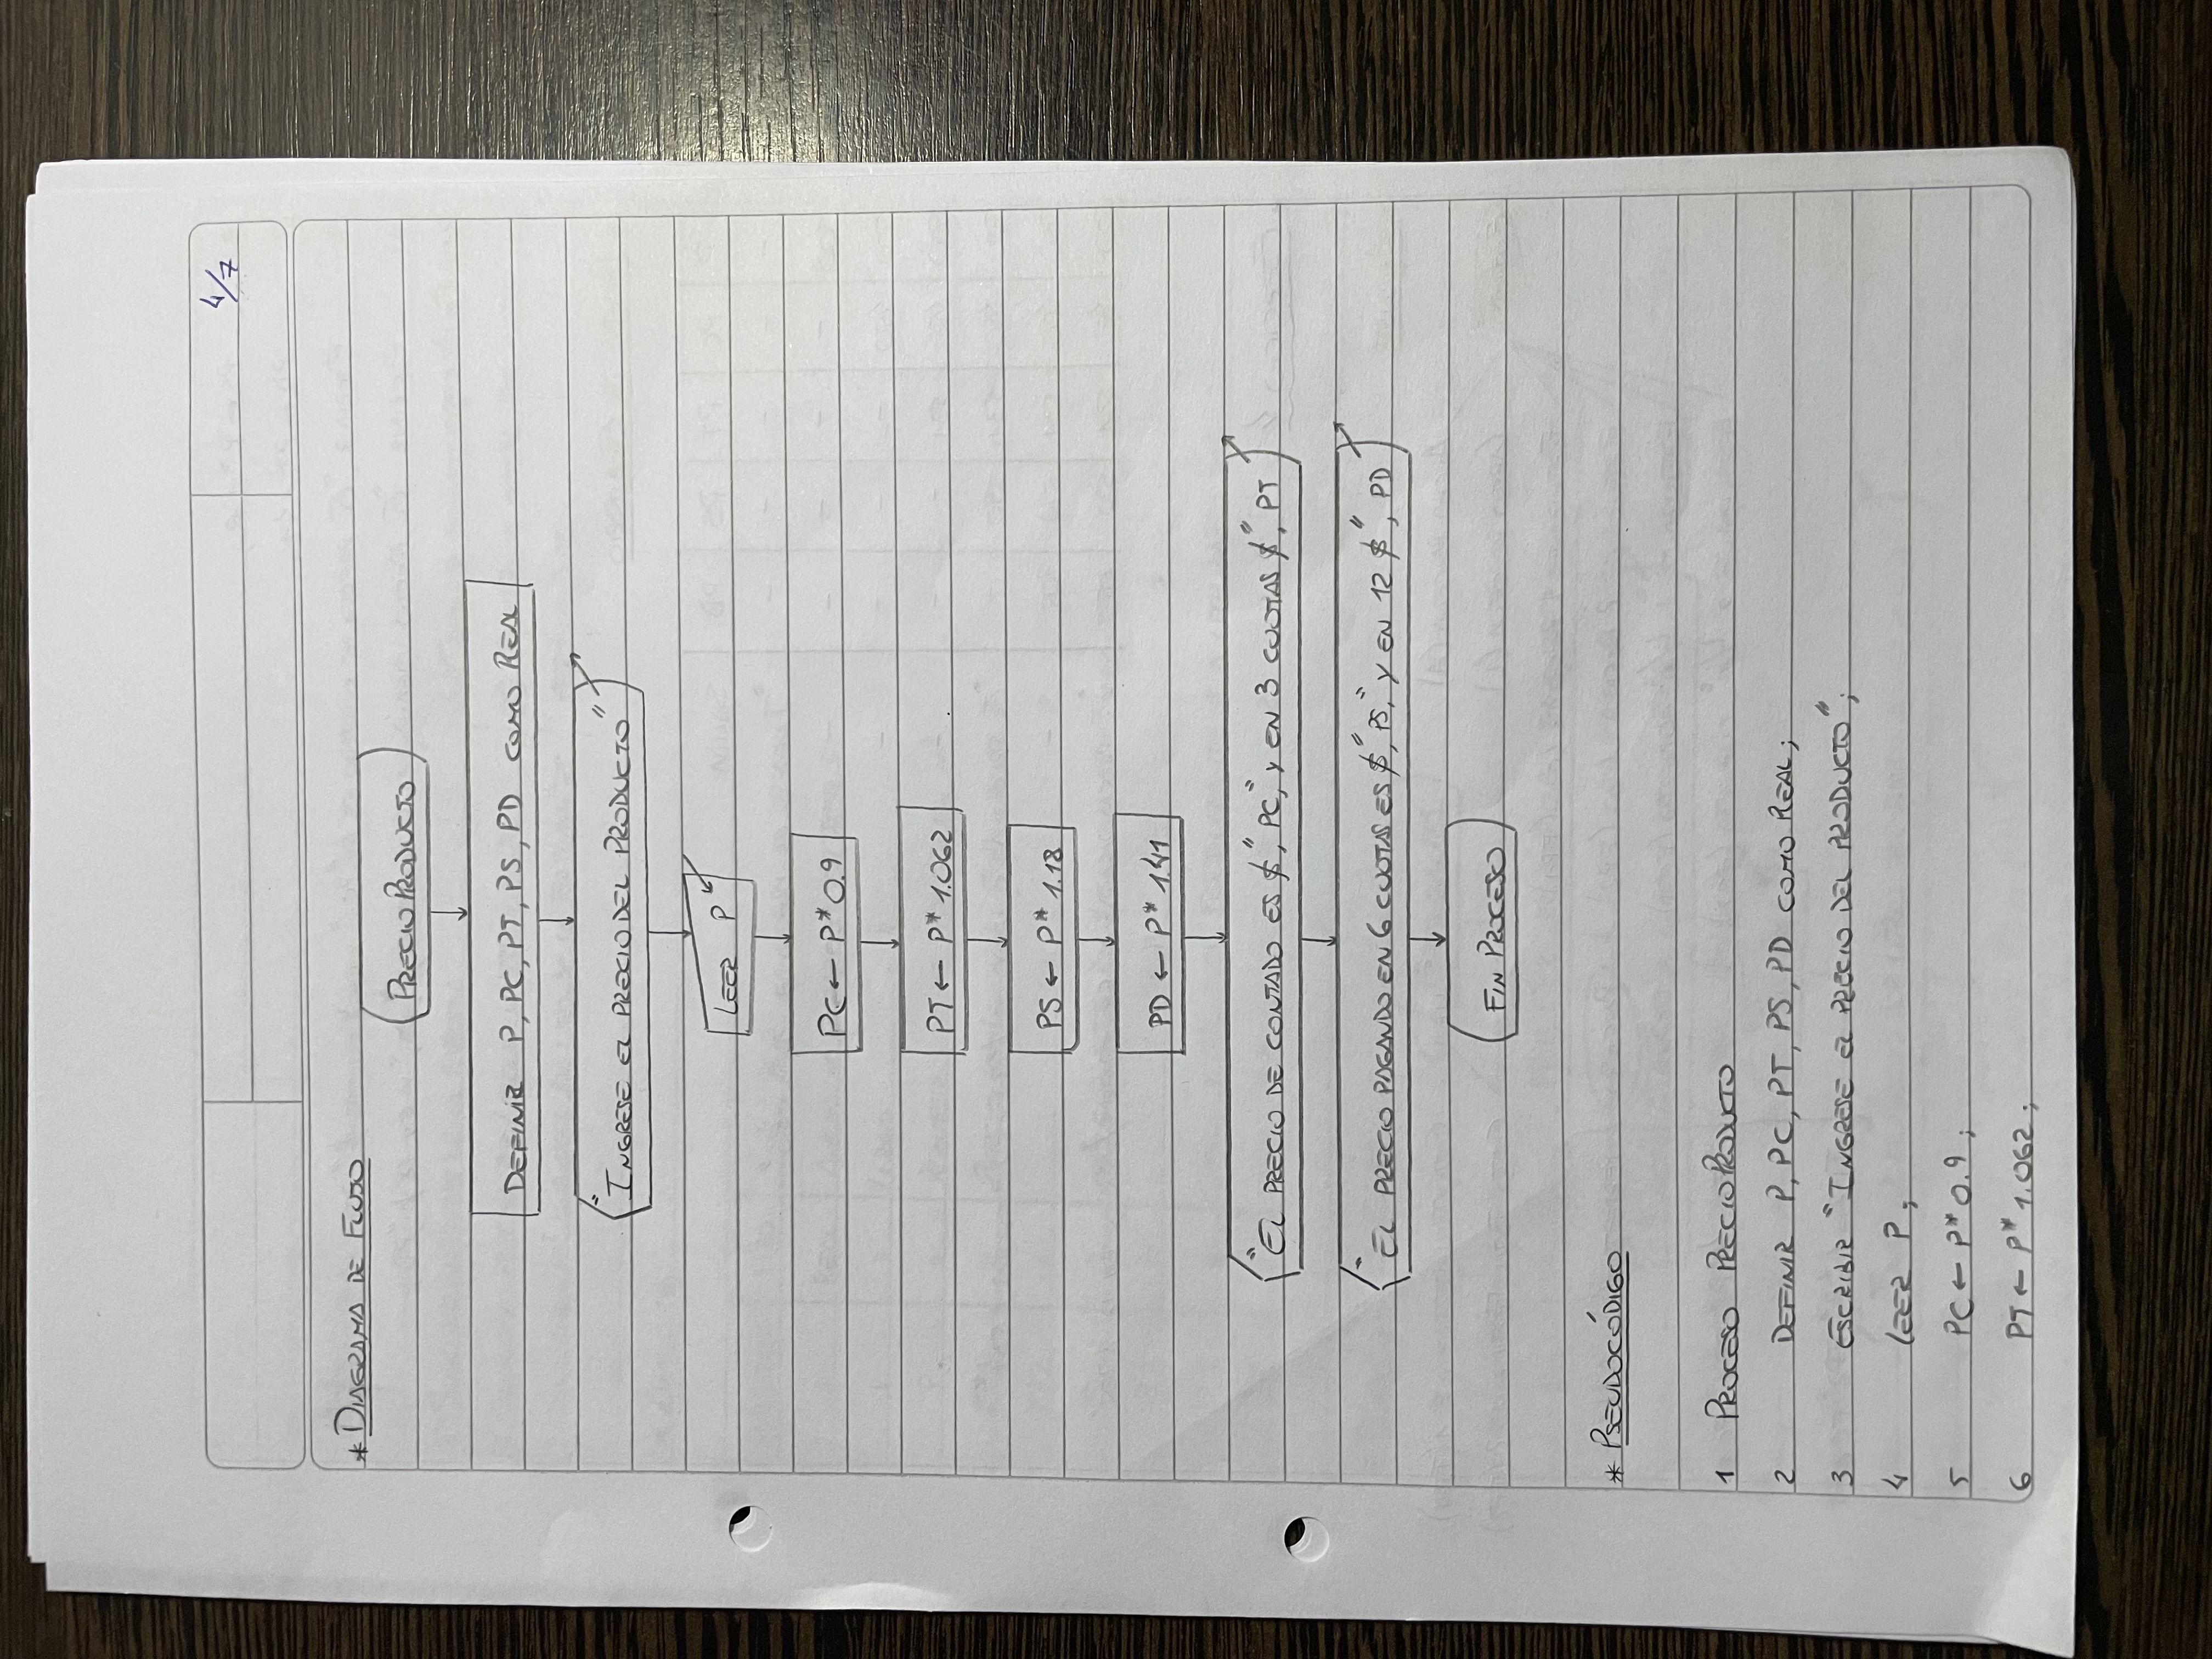 4/7
* DIAGRAMA DE FLUJO
PRECIOPRODUCTO
DEFINIR P, PC, PT, PS, PD COMO REAL
"INGRESE EL PRECIO DEL PRODUCTO"
LEER P
PC ← P * 0.9
PT ← P * 1.062
PS ← P * 1.18
PD ← P * 1.41
"EL PRECIO DE CONTADO ES $", PC, " Y EN 3 CUOTAS $", PT
"EL PRECIO PAGANDO EN 6 CUOTAS ES $", PS, " Y EN 12 $", PD
FIN PROCESO
* PSEUDOCÓDIGO
1 PROCESO PRECIOPRODUCTO
2 DEFINIR P, PC, PT, PS, PD COMO REAL;
3 ESCRIBIR "INGRESE EL PRECIO DEL PRODUCTO";
4 LEER P;
5 PC ← P * 0.9;
6 PT ← P * 1.062;